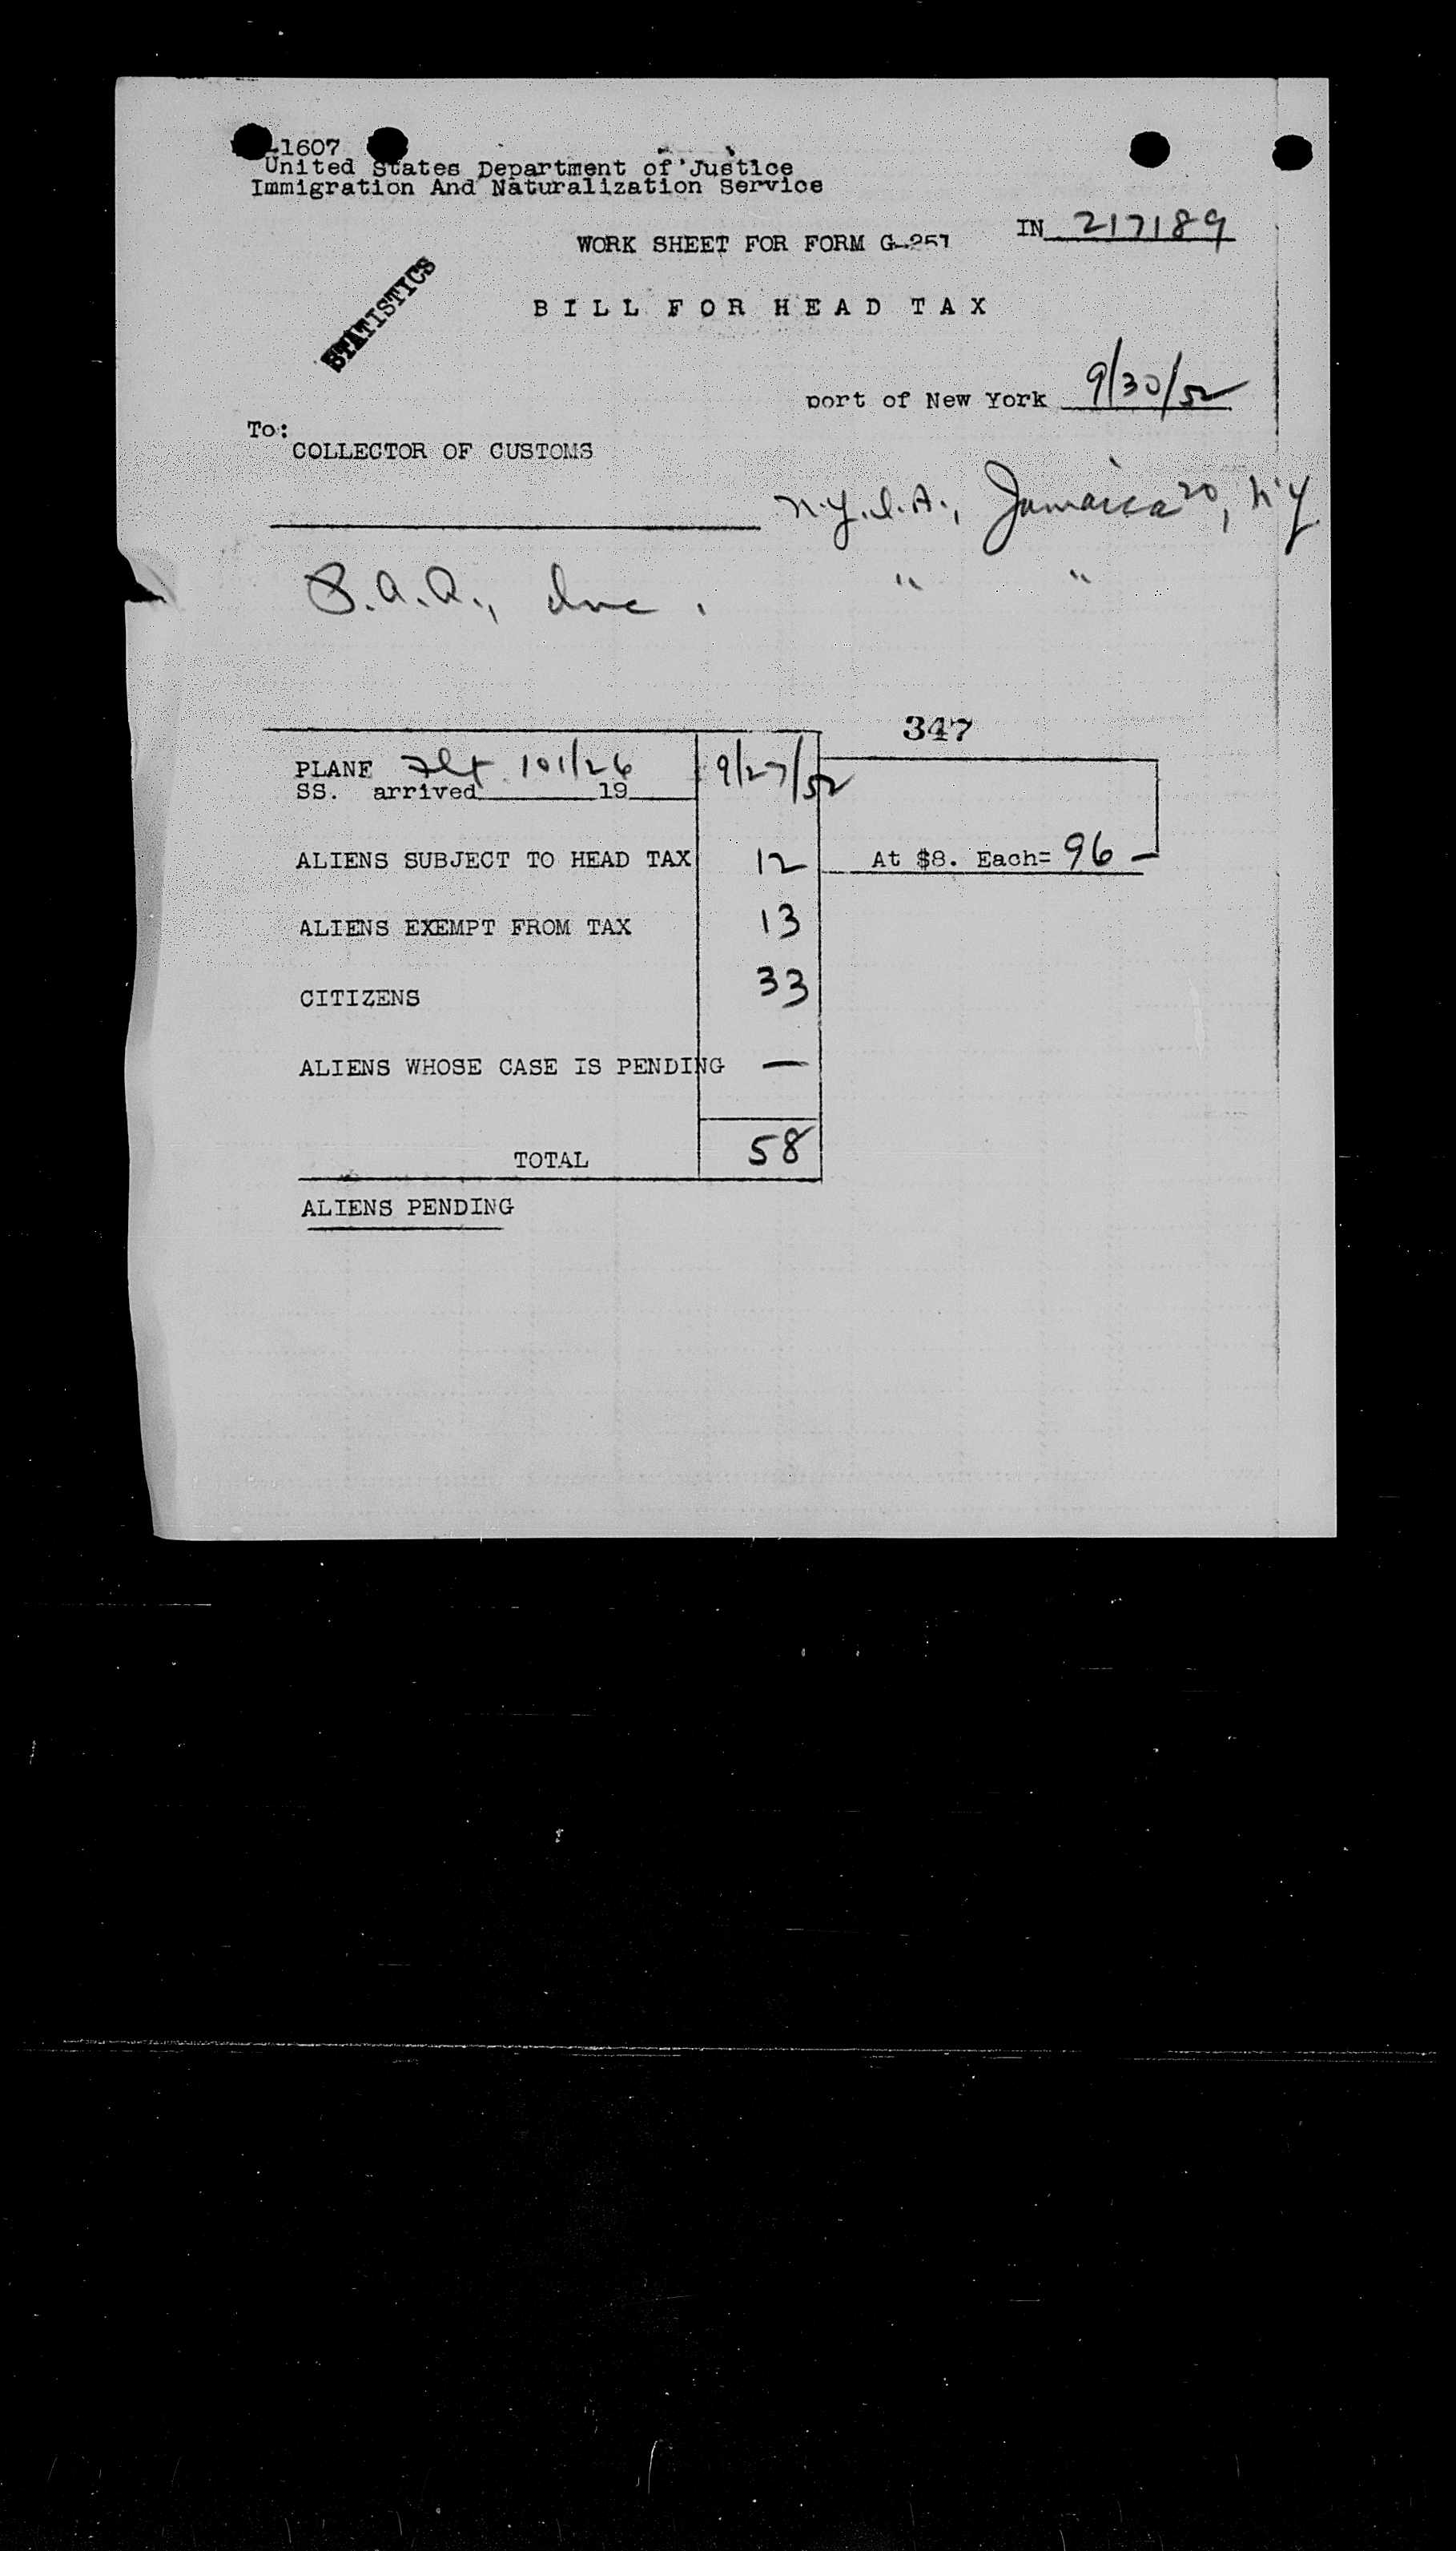 -1607
United States Department of Justice
Immigration And Naturalization Service
IN 217189
WORK SHEET FOR FORM G-257
STATISTICS
BILL FOR HEAD TAX
port of New York 9/30/52
To:
COLLECTOR OF CUSTOMS
N.Y.I.A., Jamaica 20, N.Y.
P.A.A., Inc. " "
347
PLANE Flt 101/26 9/27/52
SS. arrived 19
ALIENS SUBJECT TO HEAD TAX 12 At $8. Each= 96 —
ALIENS EXEMPT FROM TAX 13
CITIZENS 33
ALIENS WHOSE CASE IS PENDING —
TOTAL 58
ALIENS PENDING